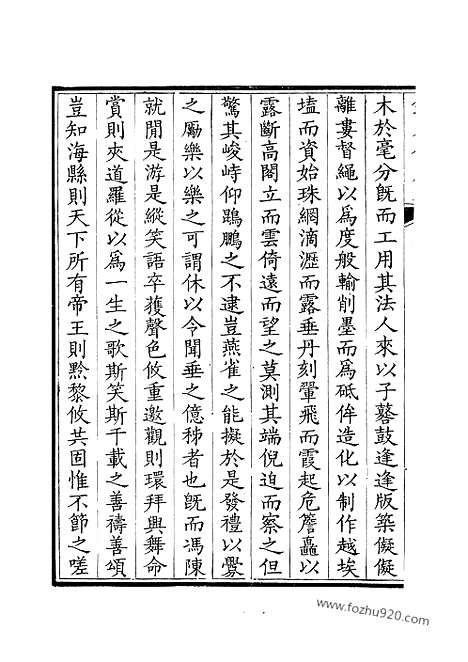 木於毫分旣而工用其法人來以子鼛鼓逢逢版築儗儗
離婁督繩以爲度般輸削墨而爲砥侔造化以制作越埃
𡏖而資始珠網滴瀝而露垂丹刻翬飛而霞起危簷矗以
露斷高閣立而雲倚遠而望之莫測其端倪迫而察之但
驚其峻峙仰鵾鵬之不逮豈燕雀之能擬於是發禮以釁
之勵樂以樂之可謂休以令聞垂之億秭者也旣而馮陳
就閒是游是縱笑語卒獲聲色攸重邀觀則環拜興舞命
賞則夾道羅從以爲一生之歌斯笑斯千載之善禱善頌
豈知海縣則天下所有帝王則黔黎攸共固惟不節之嗟
www.fozhu920.com